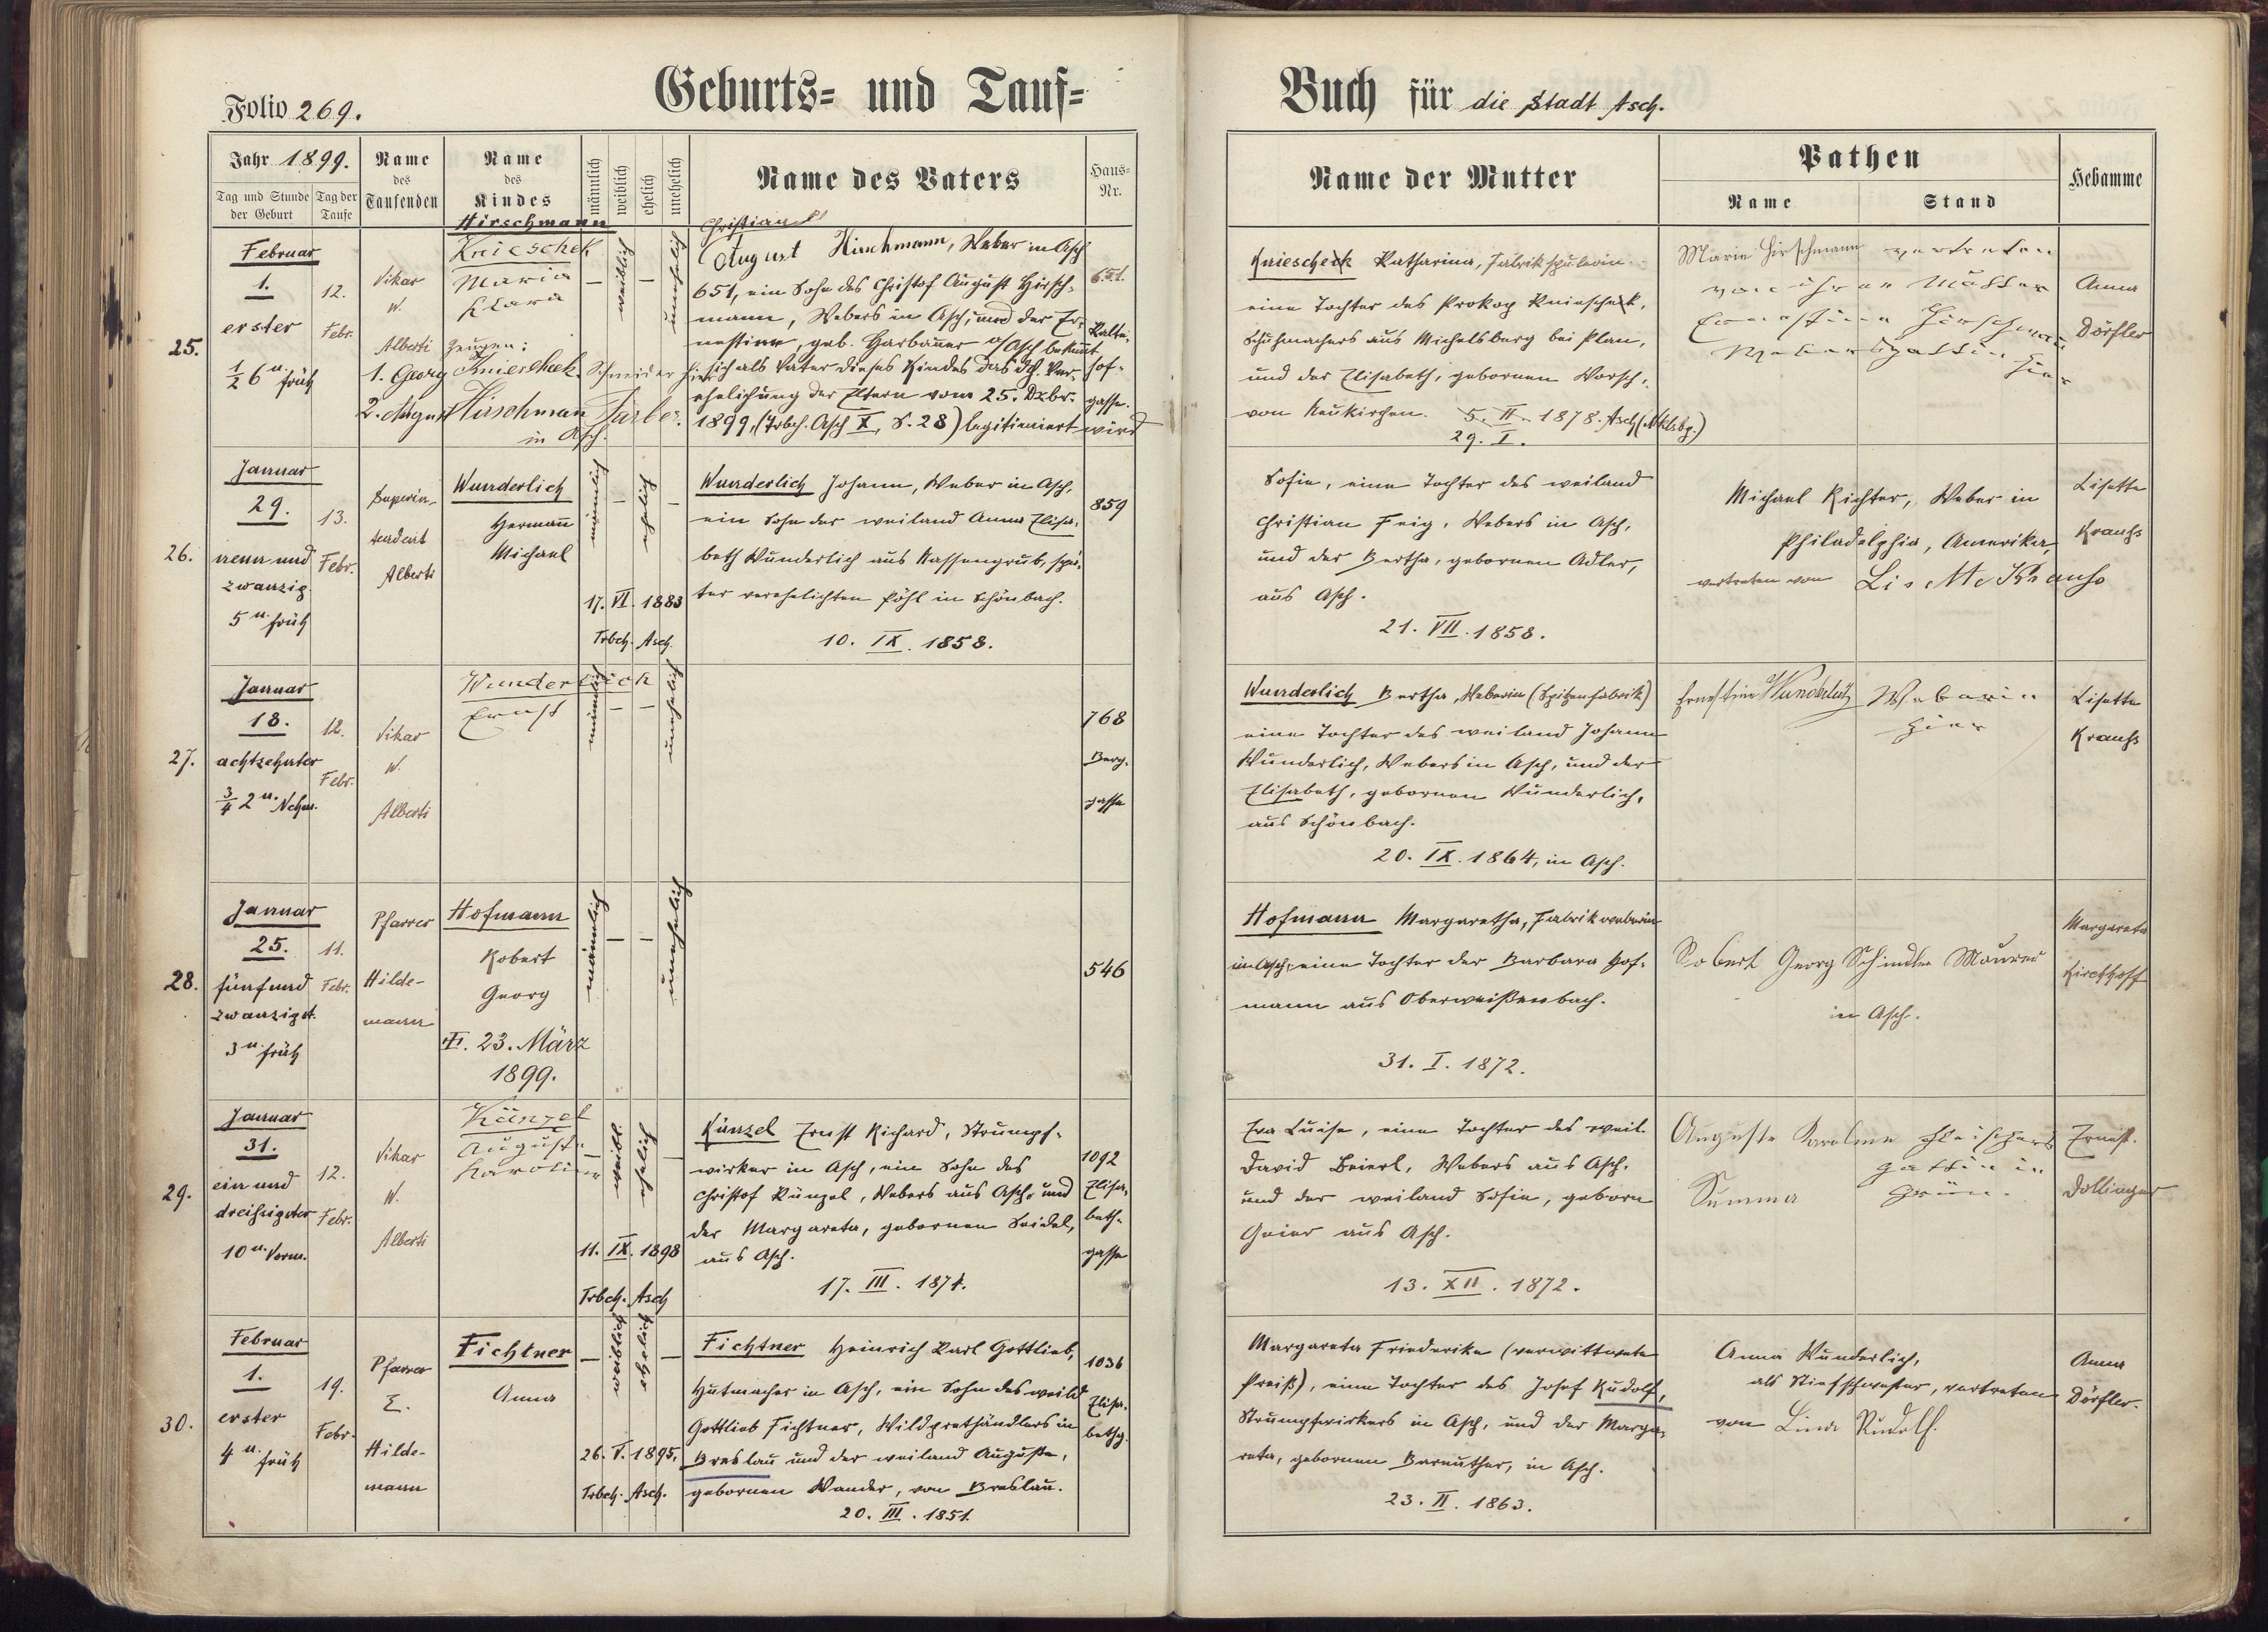 Folio 269.
Geburts- und Tauf-
Buch für die Stadt Asch.
Jahr 1899.
Tag und Stunde der Geburt
Tag der Taufe
Name des Taufenden
Name des Kindes
männlich
weiblich
ehelich
unehelich
Name des Vaters
Haus-Nr.
Name der Mutter
Pathen
Name
Stand
Hebamme
25.
Februar
1.
erster
1/2 6 u früh
12.
Febr.
Vikar
W.
Alberti
Hirschmann
Knieschek
Maria
Klara
Zeugen:
1. Georg Knierscheek. Schneider hier
2. August Hirschman Färber.
in Asch.
—
weiblich
—
unehelich
Christian
August Hirschmann, Weber in Asch
651, ein Sohn des Christof August Hirsch-
mann, Webers in Asch, und der Er-
nestine, geb. Harbauer a/Asch bekennt
sich als Vater dieses Kindes das d. Ver-
ehelichung der Eltern vom 25. Dzbr.
1899, (Trbch. Asch X, S. 28) legitimiert wird
651.
Kalte-
hof-
gasse.
Knieschek Katharina, Fabrikspulerin
eine Tochter des Prokop Knieschek,
Schuhmachers aus Michelsberg bei Plan,
und der Elisabeth, gebornen Worsch,
von Neukirchen. 5. II. 1878. Asch (Nklbg.)
29. I.
Marie Hirschmann vertreten
von ihrer Mutter
Ernestine Hirschmann
Webersgattin hier
Anna
Dörfler
26.
Januar
29.
neun und
zwanzig.
5 u. früh
13.
Febr.
Superin-
tendent
Alberti
Wunderlich
Hermann
Michael
männlich
—
ehelich
—
17. VI. 1883
Trbch. Asch.
Wunderlich Johann, Weber in Asch,
ein Sohn der weiland Anna Elisa-
beth Wunderlich aus Nassengrub, spä-
ter verehelichten Pöhl in Schönbach.
10. IX. 1858.
859
Sofie, eine Tochter des weiland
Christian Feig, Webers in Asch,
und der Bertha, gebornen Adler,
aus Asch.
21. VII. 1858.
Michael Richter, Weber in
Philadelphia, Amerika,
vertreten von Lisette Krauß
Lisette
Krauß
27.
Januar
18.
achtzehnter
3/4 2 u. Nchm.
12.
Febr.
Vikar
W.
Alberti
Wunderlich
Ernst
männlich
—
—
unehelich
768
Berg-
gasse
Wunderlich Bertha, Weberin (Spitzenfabrik)
eine Tochter des weiland Johann
Wunderlich, Webers in Asch, und der
Elisabeth, gebornen Wunderlich,
aus Schönbach.
20. IX. 1864, in Asch.
Ernestine Wunderlich Weberin
hier
Lisette
Krauß
28.
Januar
25.
fünf und
zwanzigst.
3 u. früh
11.
Febr.
Pfarrer
Hilde-
mann
Hofmann
Robert
Georg
†. 23. März
1899.
männlich
—
—
unehelich
546
Hofmann Margaretha, Fabrikweberin
in Asch, eine Tochter der Barbara Hof-
mann aus Oberweißenbach.
31. I. 1872.
Robert Georg Schindler Maurer
in Asch.
Margareta
Kirchhoff
29.
Januar
31.
ein und
dreißigster
10 u. Vorm.
12.
Febr.
Vikar
W.
Alberti
Künzel
Auguste
Karoline
—
weibl.
ehelich
—
11. IX. 1898
Trbch. Asch
Künzel Ernst Richard, Strumpf-
wirker in Asch, ein Sohn des
Christof Künzel, Webers aus Asch, und
der Margareta, gebornen Seidel,
aus Asch.
17. III. 1874.
1092
Elisa-
beth-
gasse
Eva Luise, eine Tochter des weil.
David Beierl, Webers aus Asch,
und der weiland Sofie, geborn
Geier aus Asch.
13. XII. 1872.
Auguste Karoline Fleischers
gattin in
Summa Grün.
Ernest.
Dollinger
30.
Februar
1.
erster
4 u. früh
19.
Febr.
Pfarrer
E.
Hilde-
mann
Fichtner
Anna
—
weiblich
ehelich
—
26. V. 1895,
Trbch. Asch.
Fichtner Heinrich Karl Gottlieb,
Hutmacher in Asch, ein Sohn des weild
Gottlieb Fichtner, Wildprethändlers in
Breslau und der weiland Auguste,
gebornen Wander, von Breslau.
20. III. 1851.
1036
Elisa-
bethg.
Margareta Friederike (verwittwete
Preiß), eine Tochter des Josef Rudolf,
Strumpfwirkers in Asch, und der Marga-
reta, gebornen Bareuther, in Asch.
23. II. 1863.
Anna Wunderlich,
als Stiefschwester, vertreten
von Linda Rudolf.
Anna
Dörfler.